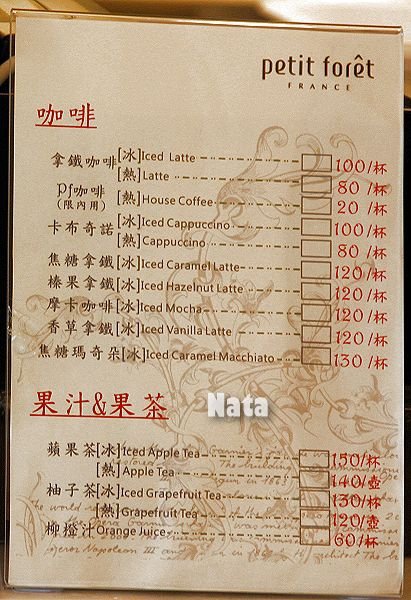 petit forêt
FRANCE
咖啡
拿鐵咖啡[冰]Iced Latte 100/杯
[熱]Latte 80 /杯
Pf咖啡[熱]House Coffee 20 /杯
(限內用)
卡布奇諾[冰]Iced Cappuccino 100/杯
[熱]Cappuccino 80 /杯
焦糖拿鐵[冰]Iced Caramel Latte 120/杯
榛果拿鐵[冰]Iced Hazelnut Latte 120 /杯
摩卡咖啡[冰]Iced Mocha 120/杯
香草拿鐵[冰]Iced Vanilla Latte 120 /杯
焦糖瑪奇朵[冰]Iced Caramel Macchiato 130 /杯
果汁&果茶
Nata
蘋果茶[冰]Iced Apple Tea 150/杯
[熱]Apple Tea 140/壺
柚子茶[冰]Iced Grapefruit Tea 130/杯
[熱]Grapefruit Tea 120/壺
柳橙汁Orange Juice 60/杯